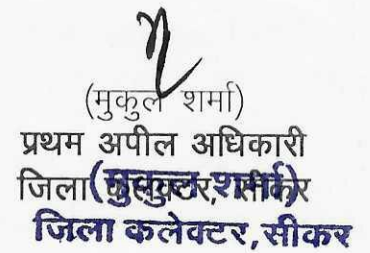 (मुकुल शर्मा)
प्रथम अपील अधिकारी
जिला कलेक्टर, सीकर
(मुकुल शर्मा)
जिला कलेक्टर, सीकर